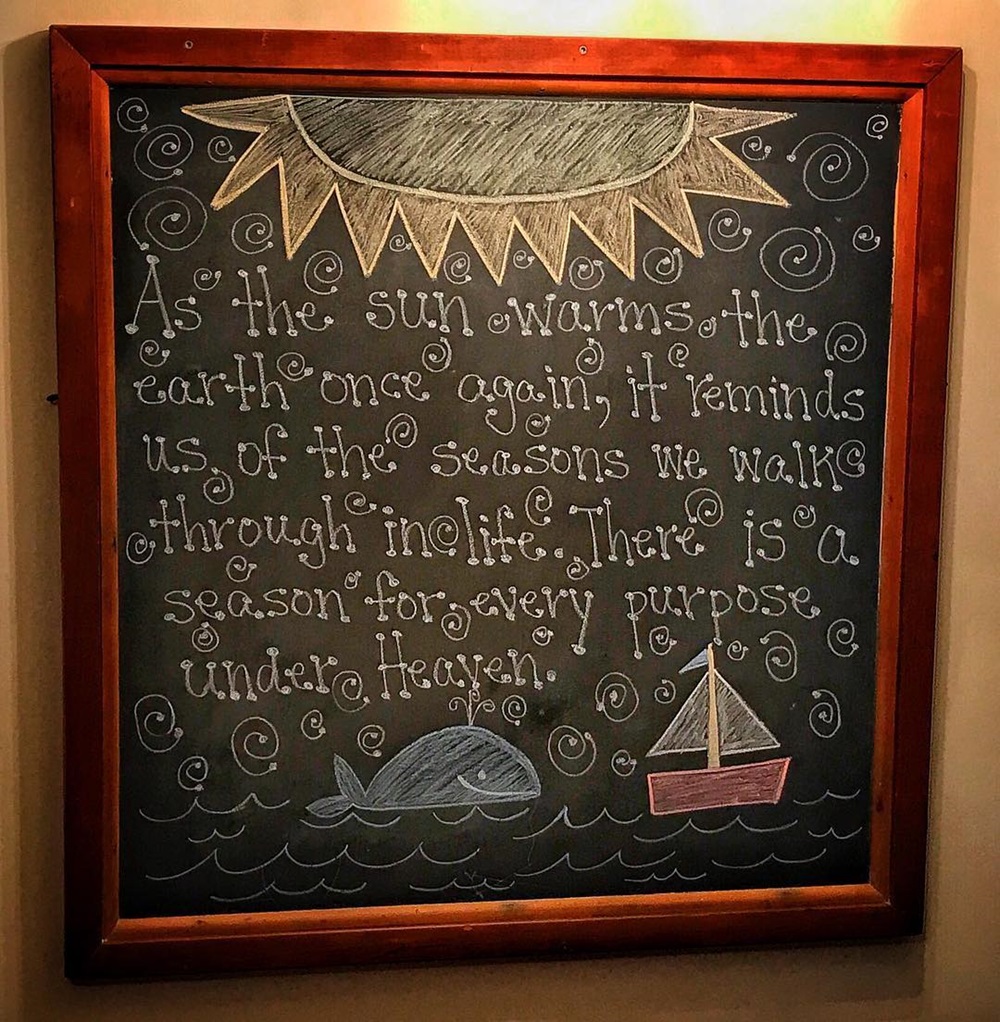 As the sun warms the
earth once again, it reminds
us of the seasons we walk
through in life. There is a
season for every purpose
under Heaven.